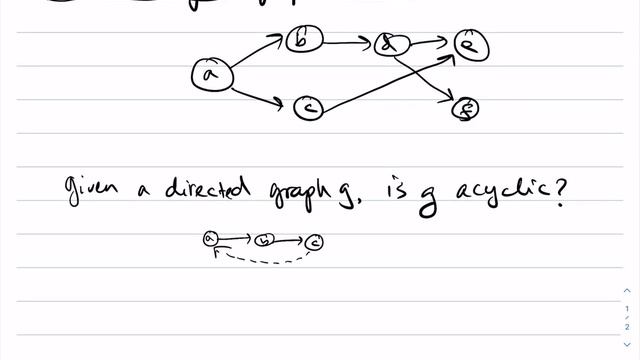 b d e
a
c f
given a directed graph g, is g acyclic?
a b c
1
/
2